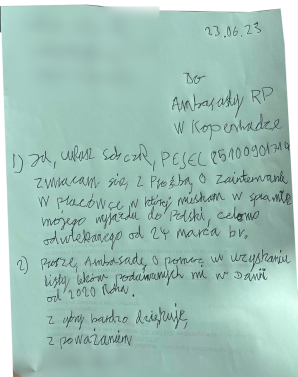 23.06.23
Do
Ambasady RP
W Kopenhadze
1) Ja, Łukasz Sobczak, PESEL
zwracam się z Prośbą o zainterw.
w placówce, w której mieszkam w sprawie
mojego wyjazdu do Polski, celowo
odwlekanego od 24 marca br.
2) Proszę Ambasadę o pomoc w uzyskaniu
listy leków podawanych mi w Danii
od 2020 Roku.
z góry bardzo dziękuję,
z poważaniem